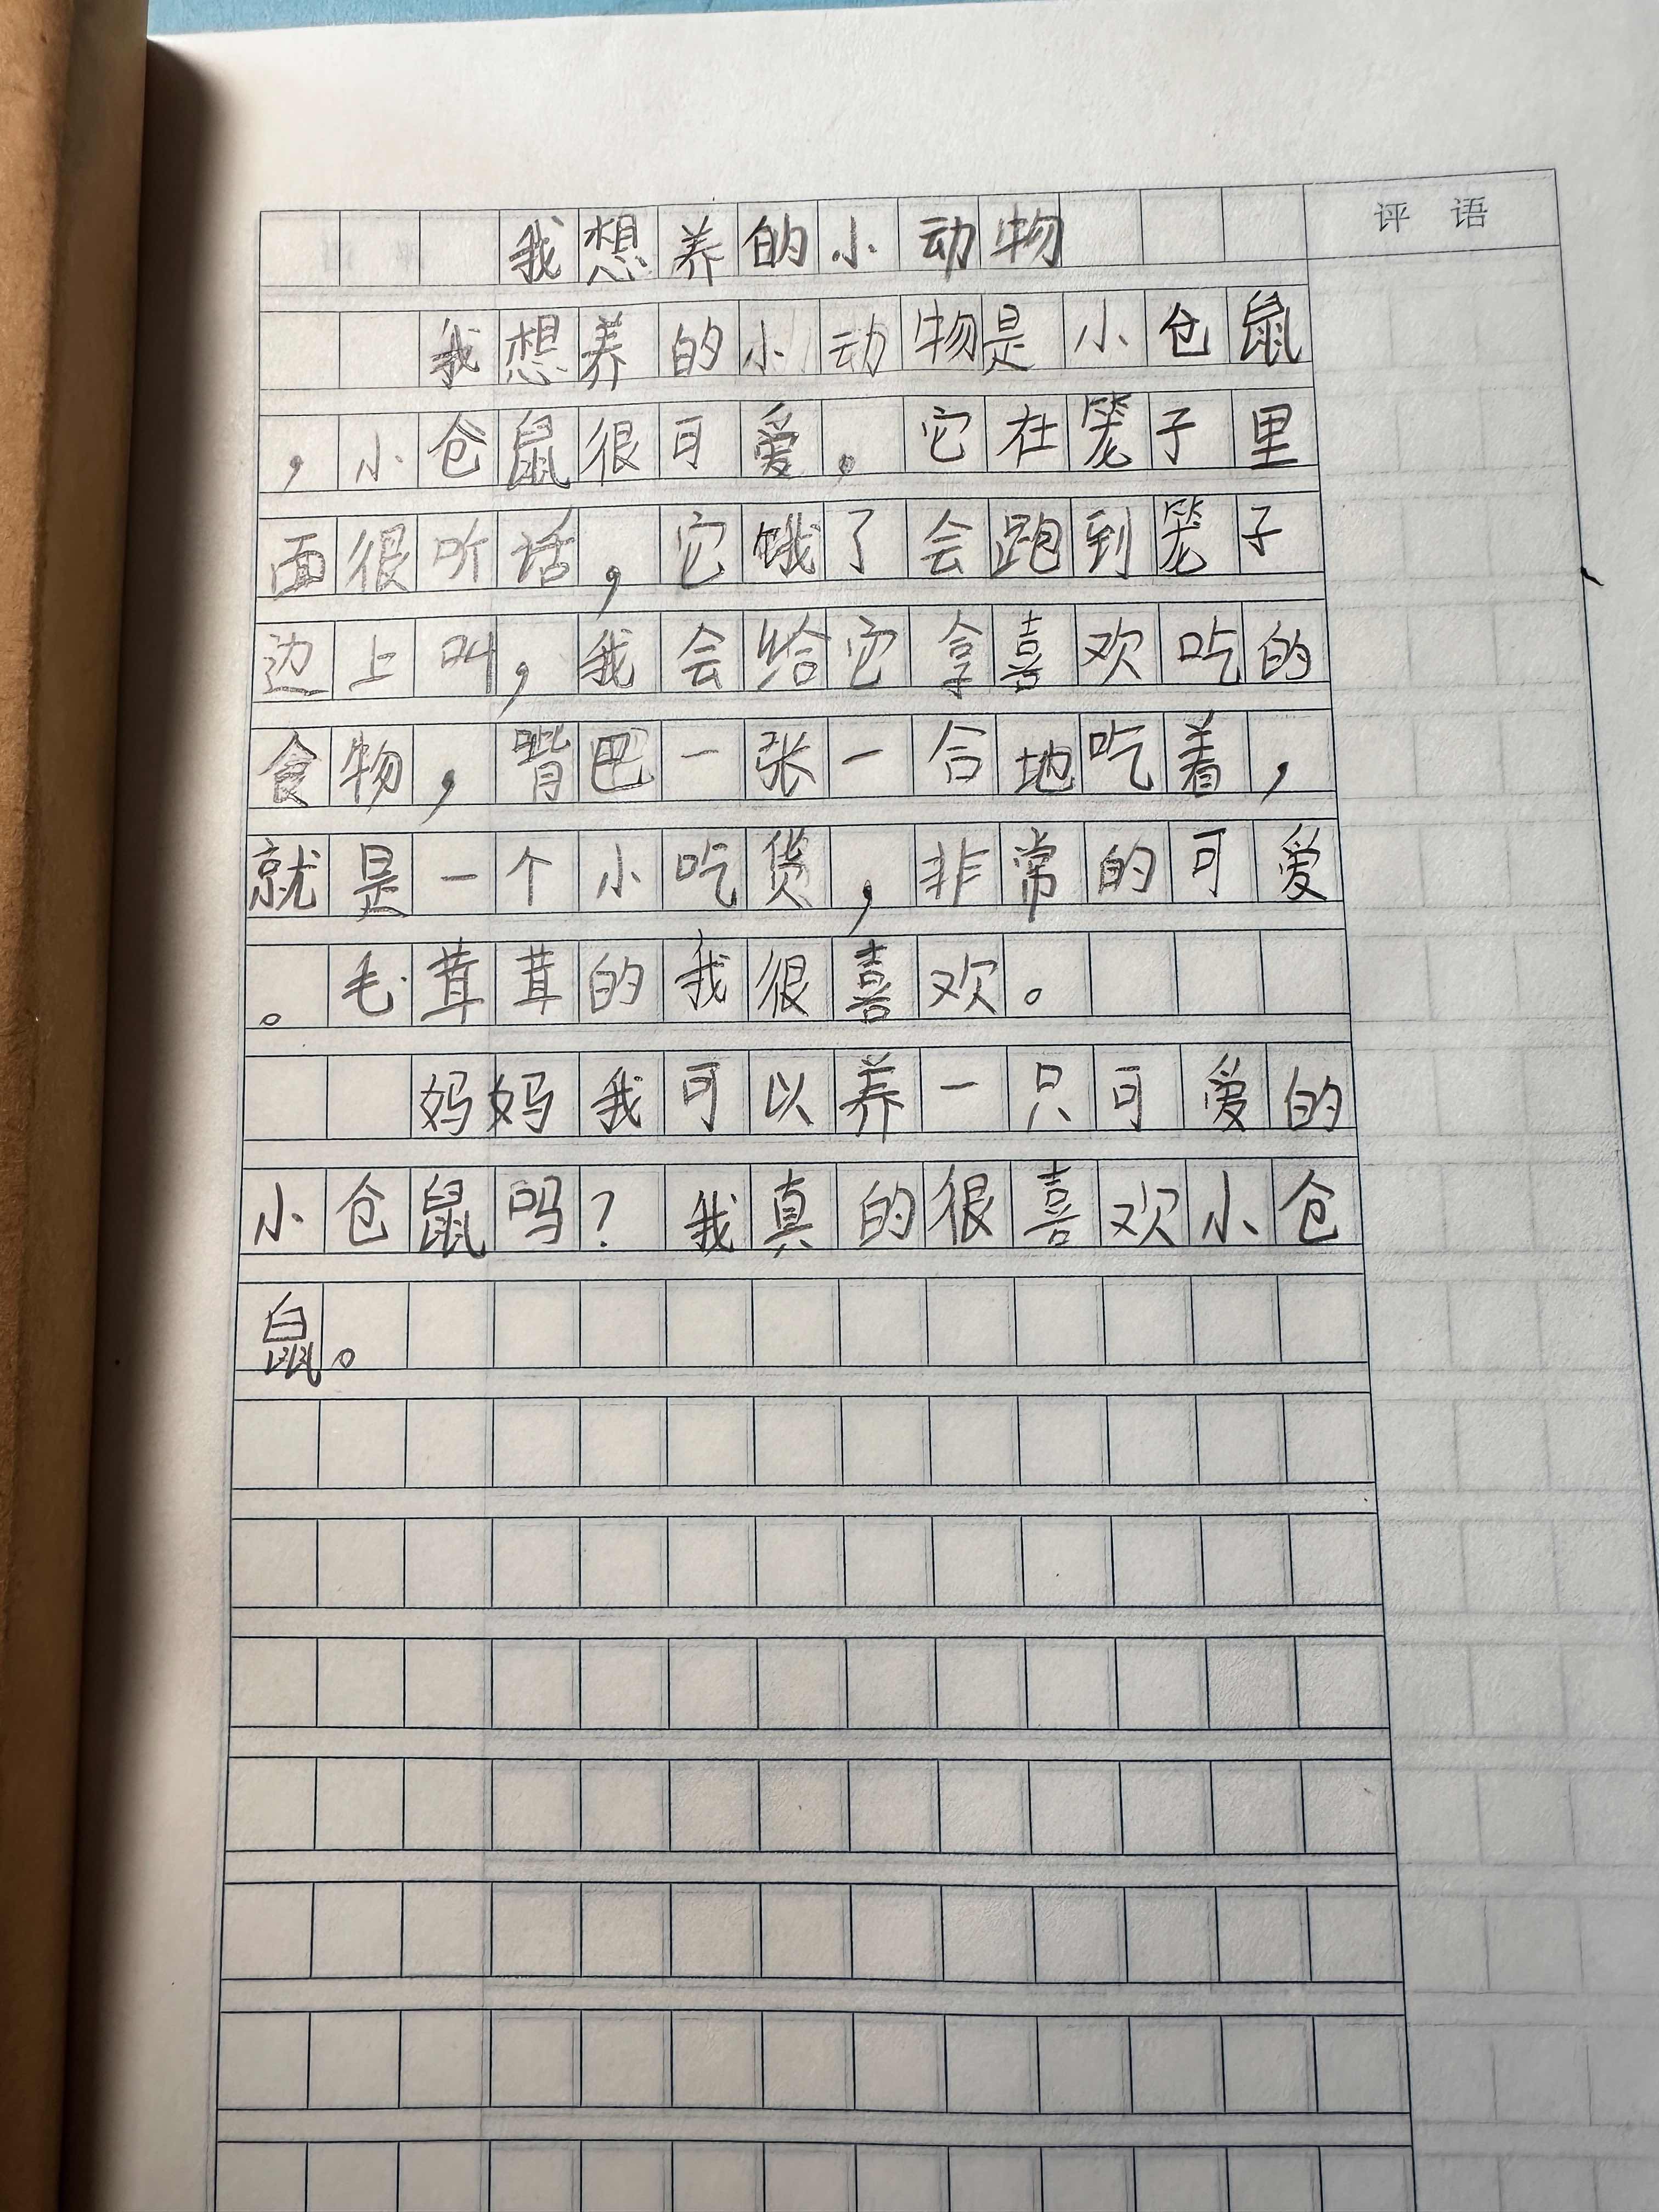 评语
我想养的小动物
我想养的小动物是小仓鼠
，小仓鼠很可爱。它在笼子里
面很听话，它饿了会跑到笼子
边上叫，我会给它拿喜欢吃的
食物，嘴巴一张一合地吃着，
就是一个小吃货，非常的可爱
。毛茸茸的我很喜欢。
妈妈我可以养一只可爱的
小仓鼠吗？我真的很喜欢小仓
鼠。